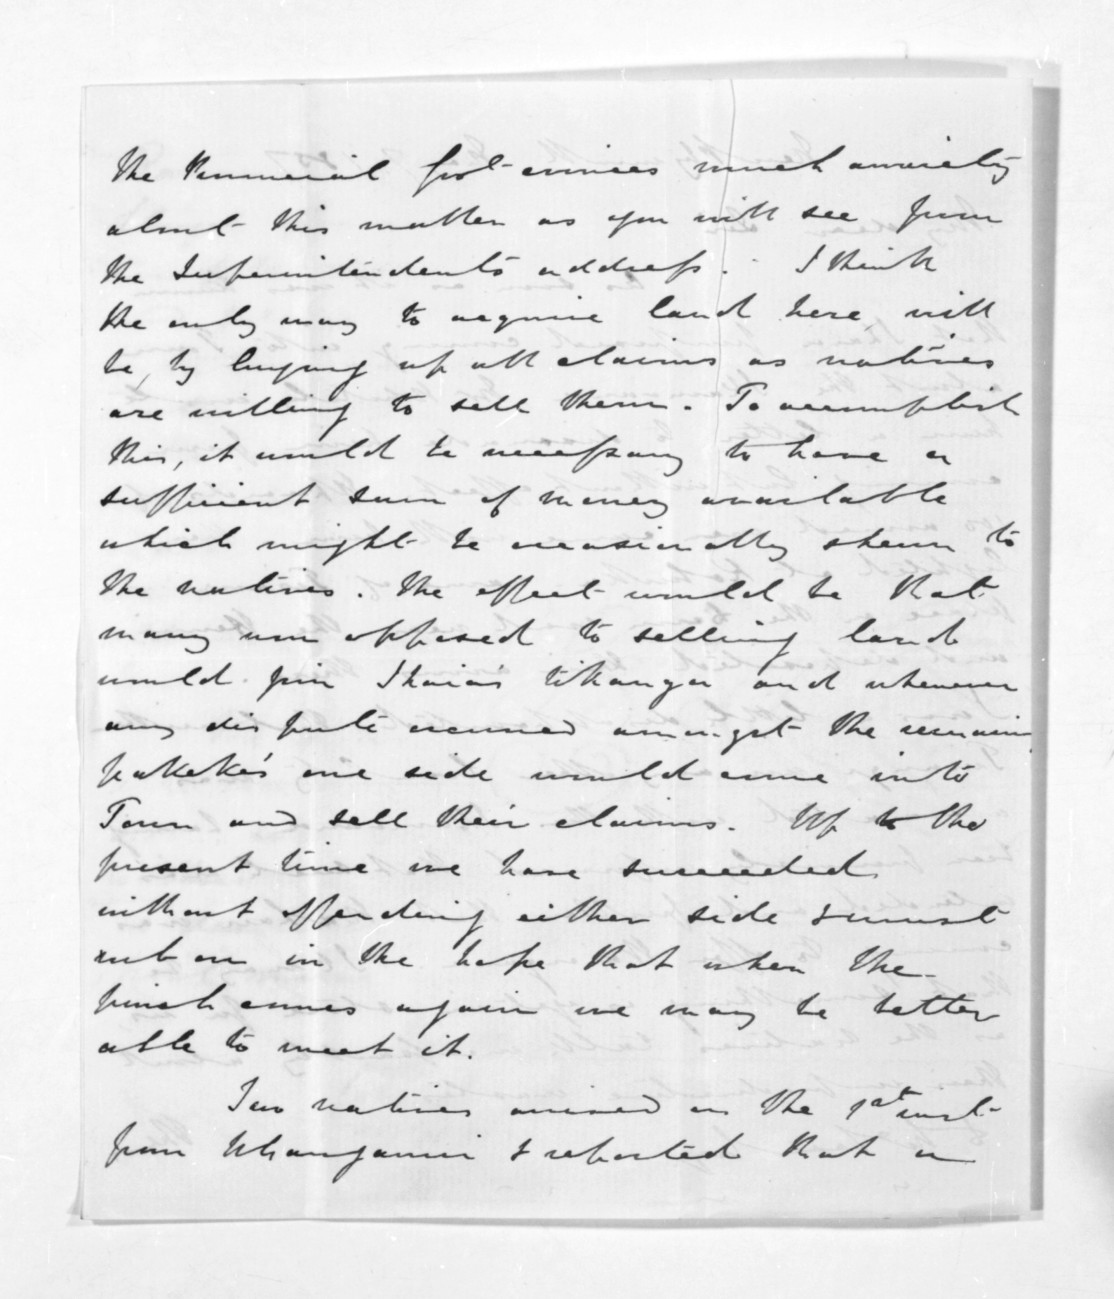 The Provincial Govt evinces much anxiety
about this matter as you will see from
the Superintendent's address. I think
the only way to acquire land here will
be, by buying up all claims as natives
are willing to sell them. To accomplish
this, it would be necessary to have a
sufficient sum of money available
which might be occasionally shewn to
the natives. The effect would be that
many now opposed to selling land
would join Ihaia's tikanga and whenever
any dispute occurred amongst the remaining
pakeke's one side would come into
Town and sell their claims. Up to the
present time we have succeeded
without offending either side & must
rub on in the hope that when the
pinch comes again we may be better
able to meet it.
Two natives arrived on the 1st inst
from Whanganui & reported that a